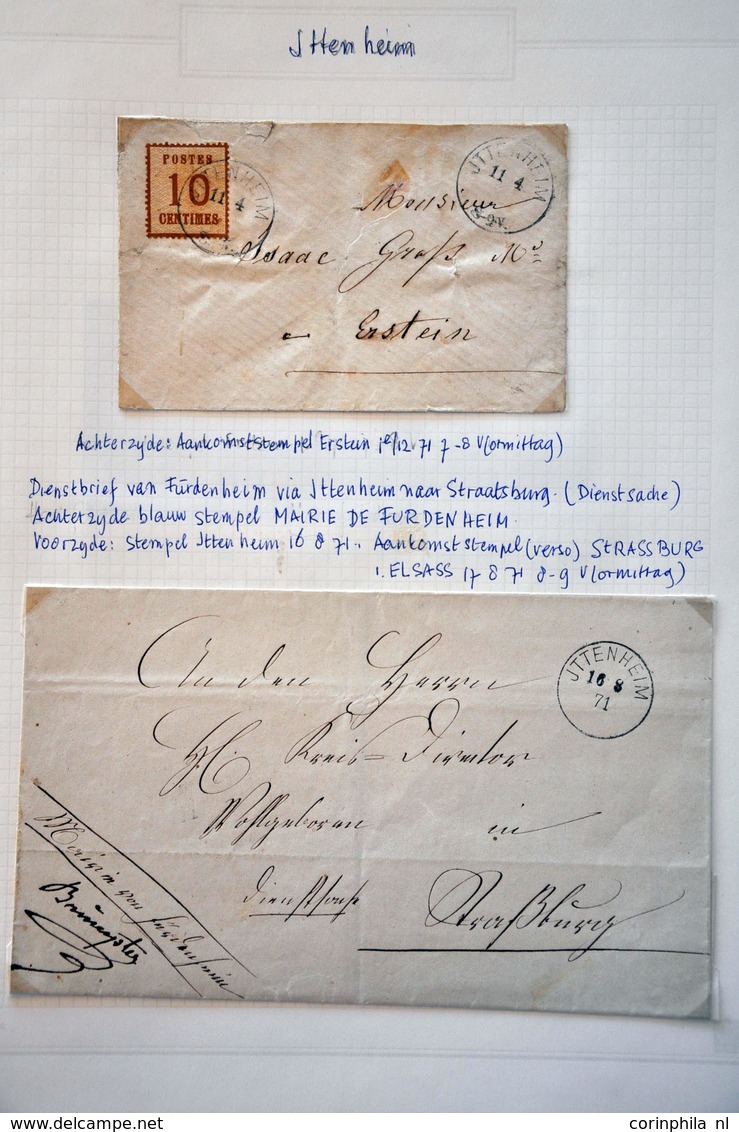 Ittenheim
POSTES
10
CENTIMES
ITTENHEIM
11 4
JTTENHEIM
11 4
8-9V.
Monsieur
Isaac Groß Md
a Erstein
Achterzyde: Aankomststempel Erstein 12 71 7-8 V(ormittag)
Dienstbrief van Fürdenheim via Ittenheim naar Straatsburg. (Dienstsache)
Achterzyde blauw stempel MAIRIE DE FURDENHEIM.
Voorzyde: Stempel Ittenheim 16 8 71. Aankomststempel (verso) STRASSBURG
i. ELSASS 17 8 71 8-9 V(ormittag)
JTTENHEIM
16 8
71
An den Herrn
Kreis-Director
Wohlgeboren in
Dienstsache Straßburg
Mairie von Fürdenheim
delcampe.net
corinphila nl